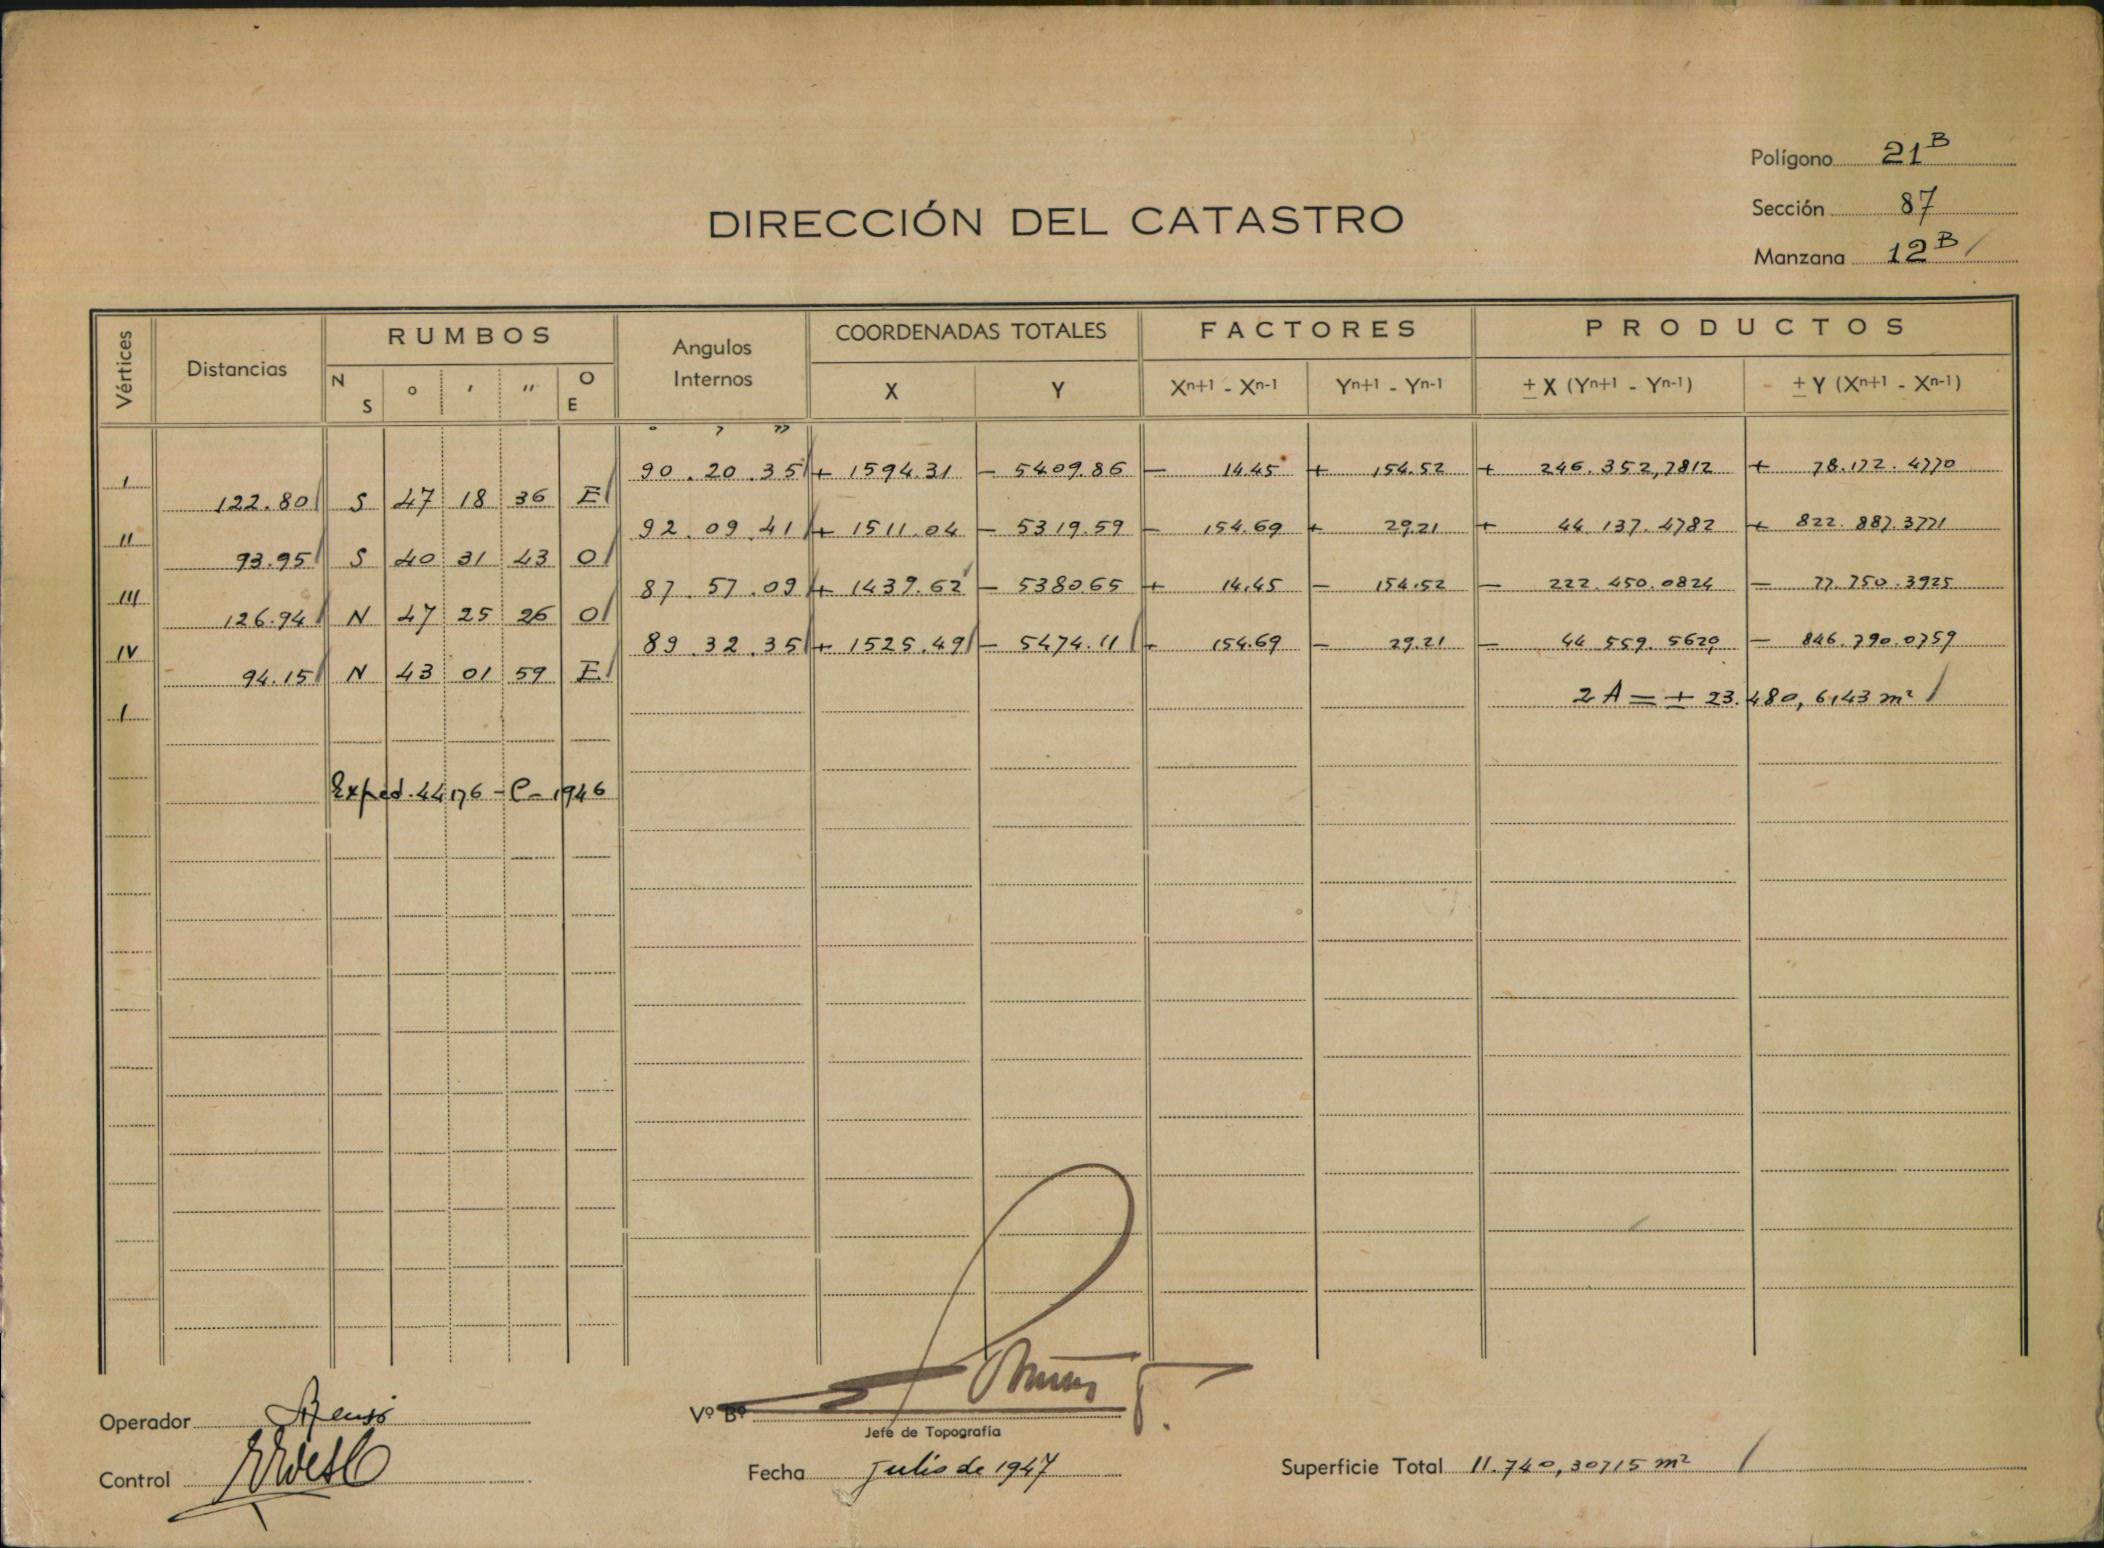 Polígono 21 B
Sección 87
Manzana 12 B
DIRECCIÓN DEL CATASTRO
Vértices Distancias RUMBOS Angulos Internos COORDENADAS TOTALES FACTORES PRODUCTOS
N S ° ' " O E X Y Xn+1 - Xn-1 Yn+1 - Yn-1 ± X (Yn+1 - Yn-1) ± Y (Xn+1 - Xn-1)
° ' "
I 90. 20. 35 + 1594.31 - 5409.86 - 14.45 + 154.52 + 246.352,7812 + 78.172.4770
122.80 S 47 18 36 E
II 92. 09. 41 + 1511.04 - 5319.59 - 154.69 + 29.21 + 44 137.4782 + 822.887.3771
93.95 S 40 31 43 O
III 87. 57. 09 + 1439.62 - 538065 + 14.45 - 154.52 - 222.450.0824 - 77.750.3925
126.94 N 47 25 26 O
IV 89. 32. 35 + 1525.49 - 5474.11 + 154.69 - 29.21 - 44 559.5629 - 846.790.0759
94.15 N 43 01 59 E
I 2 A = + 23.480,6143 m²
Exped. 44176 - C - 1946
Operador
Vº Bº
Jefe de Topografía
Control
Fecha Julio de 1947
Superficie Total 11.740,30715 m²